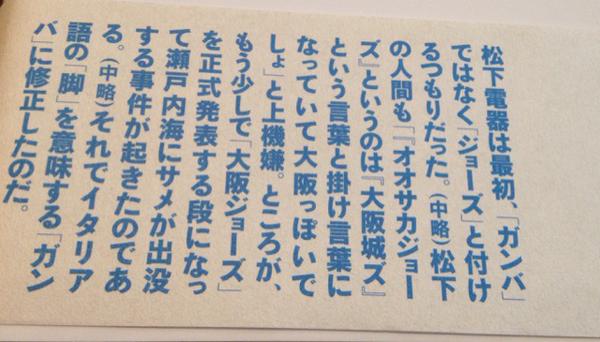 松下電器は最初、「ガンバ」
ではなく「ジョーズ」と付け
るつもりだった。(中略)松下
の人間も「『オオサカジョー
ズ』というのは『大阪城ズ』
という言葉と掛け言葉に
なっていて大阪っぽいで
しょ」と上機嫌。ところが、
もう少しで「大阪ジョーズ」
を正式発表する段になっ
て瀬戸内海にサメが出没
する事件が起きたのであ
る。(中略)それでイタリア
語の「脚」を意味する「ガン
バ」に修正したのだ。